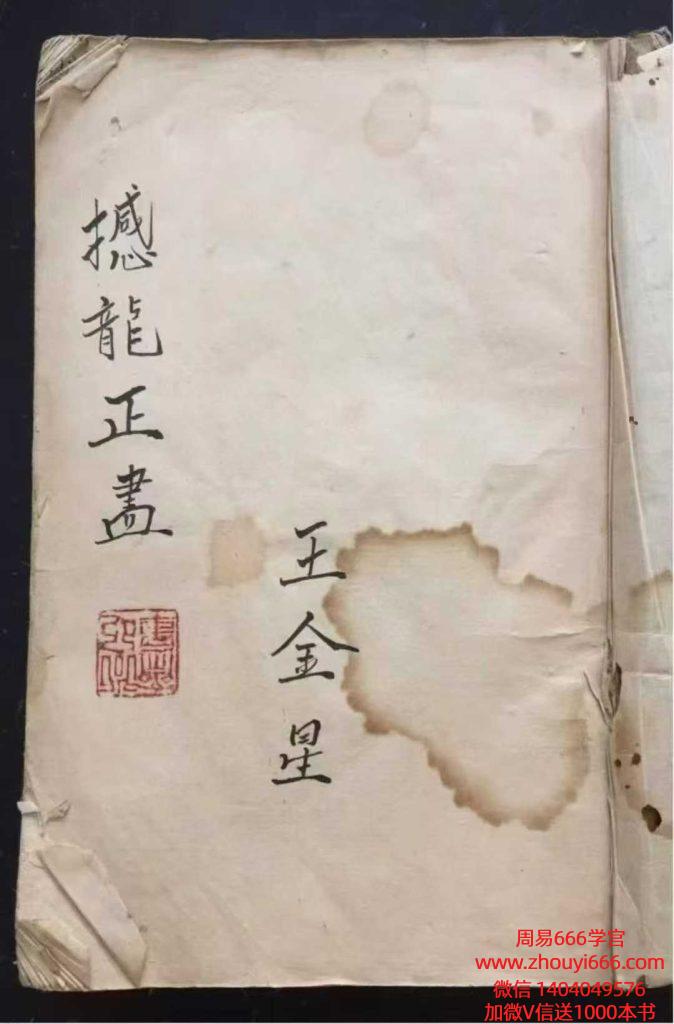 撼龍正
王金星
周易666学官
www.zhouyi666.com
微信 1404049576
加微V信送1000本书